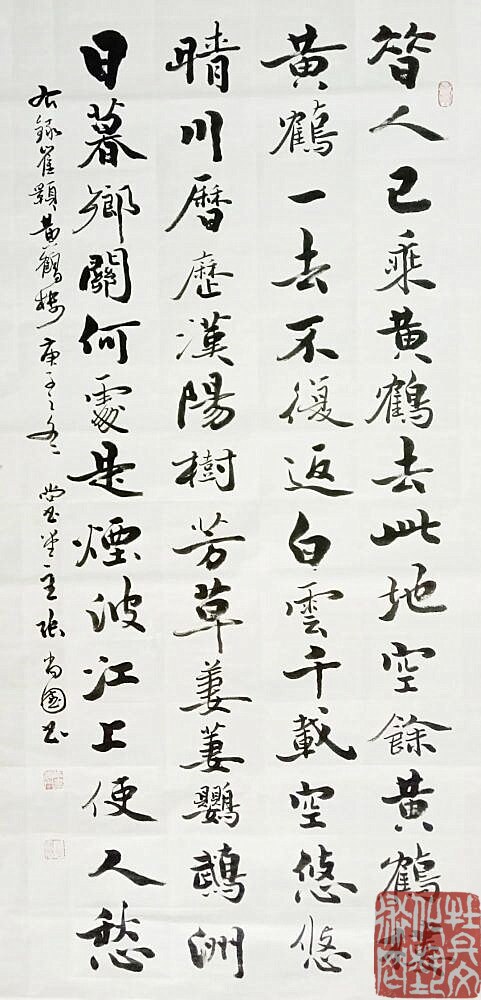 昔人已乘黄鶴去此地空餘黄鶴樓
黄鶴一去不復返白雲千載空悠悠
晴川曆歷漢陽樹芳草萋萋鸚鵡洲
日暮鄉關何處是煙波江上使人愁
右錄崔顥黄鶴樓 庚子之冬 堂主張尚國書